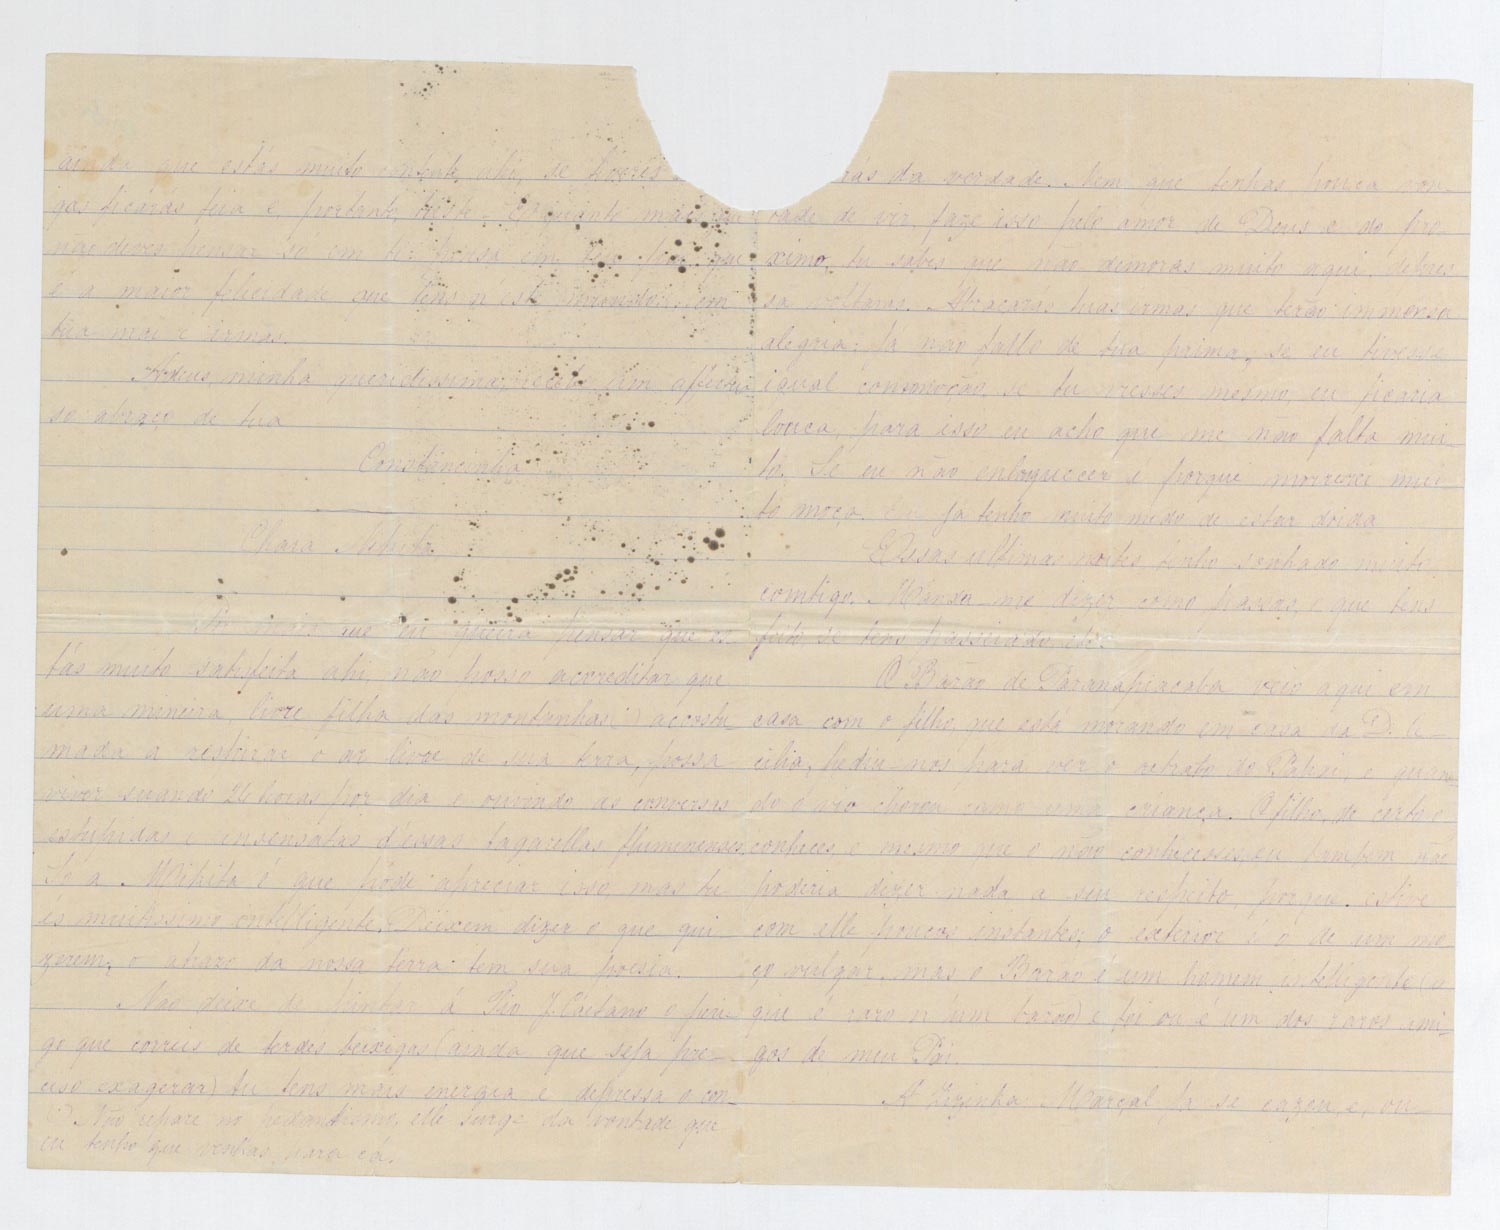 ainda que estás muito contente ahi, se tiveres
gas ficarás feia e portanto triste. Emquanto mais que
não deves pensar so em ti: pensa em teu pai que
é a maior felicidade que tens n'este mundo; em
tua mai e irmãs.
Adeus minha queridissima, recebe um affectuo
so abraço de tua
Constancinha
Chara Mihita
Por mais que eu queira pensar que es-
tás muito satisfeita ahi, não posso acreditar que
uma mineira, livre filha das montanhas (1) accostu
mada a respirar o ar livre de sua terra, possa
viver suando 24 horas por dia e ouvindo as conversas
estupidas e insensatas d'essas tagarellas fluminenses.
Só a Mihita é que póde apreciar isso, mas tu
és muitissimo intelligente. Deixem dizer o que qui
zerem, o atrazo da nossa terra tem sua poesia.
Não deixe de pintar á Pio J. Caetano o peri-
go que correis de terdes bexigas (ainda que seja pre-
ciso exagerar) tu tens mais energia e depressa o con-
(1) Não repare no pedantismo, elle surge da vontade que
eu tenho que venhas para cá.
rás da verdade. Nem que tenhas pouca von-
tade de vir, faze isso pelo amor de Deus e do pro-
ximo, tu sabes que não demoras muito aqui, depres
sa voltarás. Abraçarás tuas irmãs que terão immensa
alegria. Ja não fallo de tua prima, se eu tivesse
igual commoção, se tu viesses mesmo, eu ficaria
louca, para isso eu acho que me não falta mui-
to. Se eu não enloquecer é porque morrerei mui
to moça. Ja tenho muito medo de estar doida
Essas ultimas noites tenho sonhado muito
comtigo. Manda me dizer como passas, o que tens
feito, se tens passeiado, etc.
O Barão de Paranapiacaba veio aqui em
casa com o filho, que está morando em casa da D. Ce-
cilia, pediu-nos para ver o retrato do Papai, e quan-
do o vio chorou como uma criança. O filho, de certo o
conheces, e mesmo que o não conhecesses, eu tambem não
poderia dizer nada a seu respeito, porque estive
com elle poucos instantes; o exterior é o de um mo
ço vulgar, mas o Barão é um homem intelligente (o
que é raro n'um barão) e foi ou é um dos raros ami-
gos de meu Pai.
A Zizinha Marçal ja se cazou, e, ou-